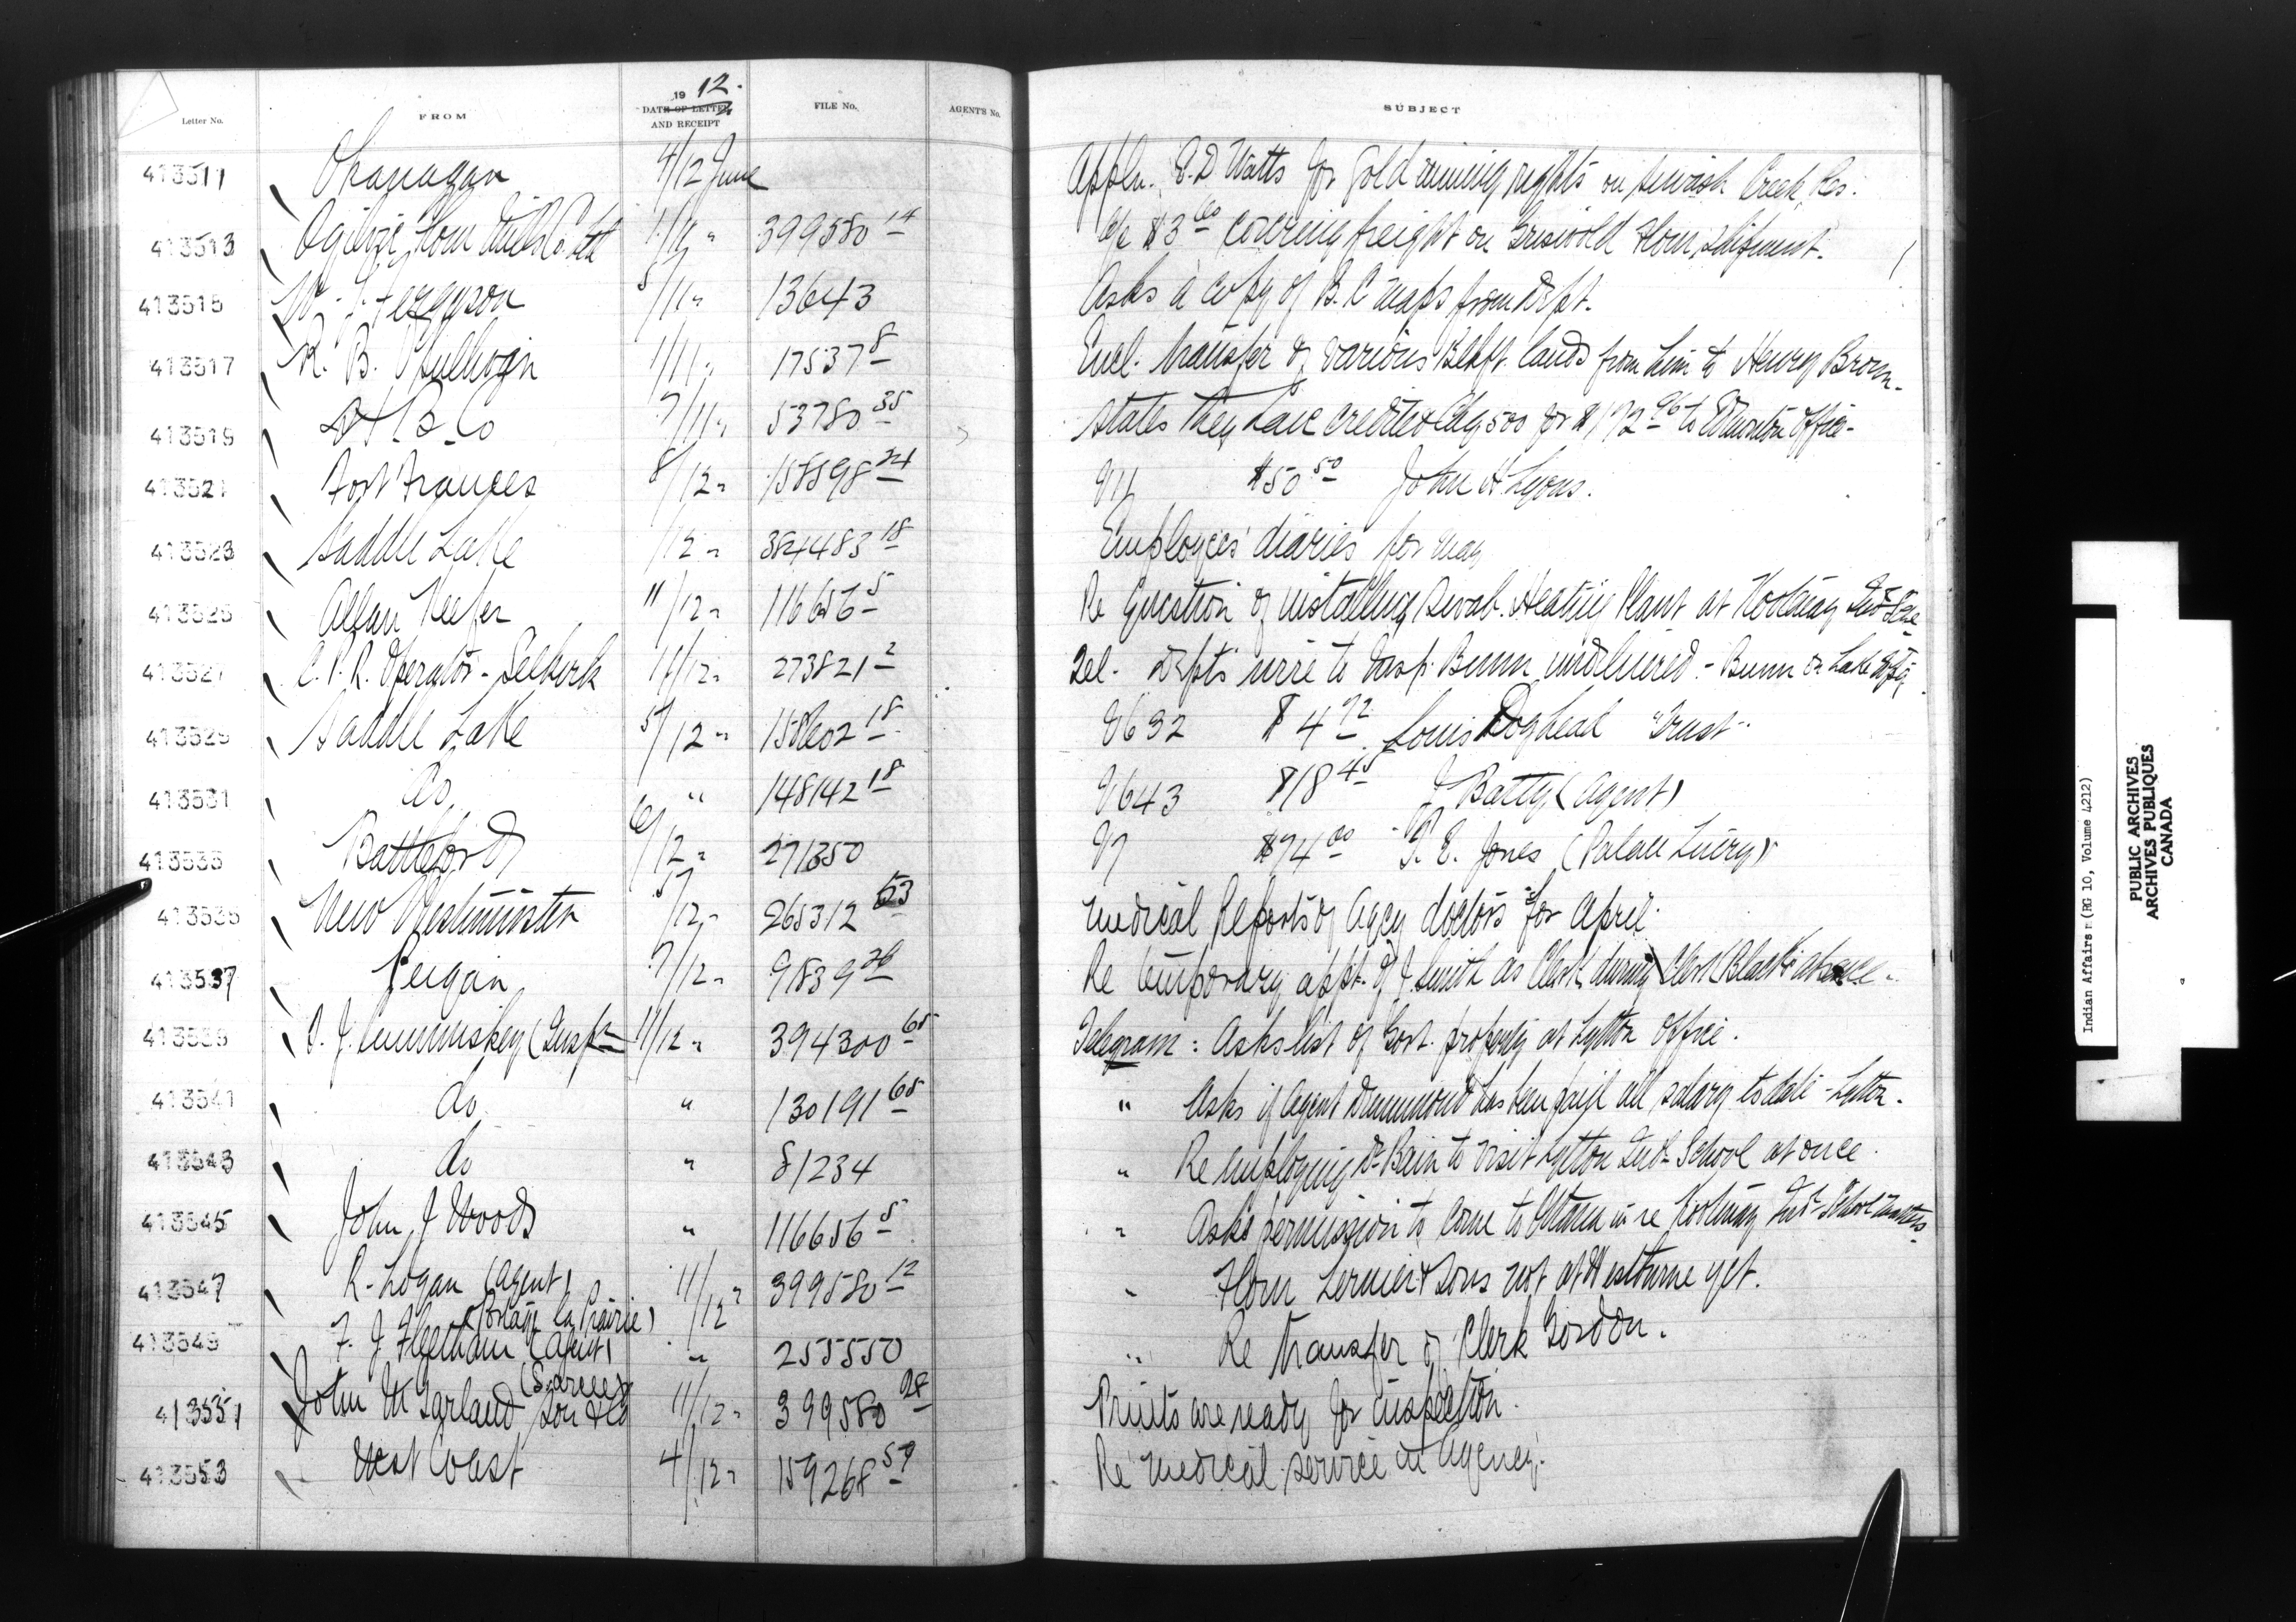 Letter No. FROM 19 12. DATE OF LETTER AND RECEIPT FILE No. AGENT'S No. SUBJECT
413511 Okanagan 4/12 June Appln. E.D Watts for gold mining rights on Creek Res.
413513 Ogilvie Flour Mills Co. Ltd 399580 14 a/c $3 60 covering freight on Griswold flour shipment.
413515 W. J. Ferguson 8/11 " 13643 Asks a copy of B.C maps from Dept.
413517 R. B. 1/11 " 17537 8 Encl. transfer of various Blkft. lands from him to Henry Brown.
413519 H. B. Co 7/11 " 53780 35 States they have credited Chq 500 for $172 96 to Edmonton Office -
413521 Fort Frances 8/12 " 158598 24 $50 50 John H. Lyons.
413523 Saddle Lake /12 " 384483 18 Employees' diaries for May
413525 Allan Keefer 11/12 " 116656 5 Re Question of installing Heating Plant at Kootenay Ind
413527 C. P. R. Operator - Selkirk 11/12 " 273821 2 Tel. Dept's wire to Insp. Bunn undelivered - Bunn on Lake
413529 Saddle Lake 5/12 " 158602 18 V632 $4 72 Louis Doghead Trust -
413531 do " 148142 18 V643 $18 45 J Batty (Agent)
413533 Battleford 6/12 " 271350 V7 $74 00 T. E. Jones (Palace Livery)
413535 New Westminster 5/12 " 265312 53 Medical Reports of Agcy doctors for April.
413537 Peigan 7/12 " 91839 26 Re temporary appt. of J. Smith as Clerk during Clerk Black's absence -
413539 J. Cummiskey (Insp 11/12 " 394300 68 Telegram : Asks list of Govt. property at Lytton Office.
413541 do " 130191 68 " Asks if Agent Drummond has been paid all salary to date - Lytton.
413543 do " 81234 " Re employing Dr Bain to visit Lytton Ind. School at once.
413545 John J Woods " 116656 5 " Asks permission to come to Ottawa in re Kootenay Ind. School matters
413547 R. Logan (Agent) (Portage la Prairie) 11/12 " 399580 12 " Flour & Sons not at Westbourne yet.
413549 F. J. Fleetham (Agent) (Sarcee) " 255550 " Re transfer of Clerk Gordon.
413551 John M Garland Son & Co 11/12 " 399580 28 Prints are ready for inspection.
413553 West Coast 4/12 " 159268 59 Re medical service in Agency.
Indian Affairs (RG 10, Volume 4212)
PUBLIC ARCHIVES
ARCHIVES PUBLIQUES
CANADA